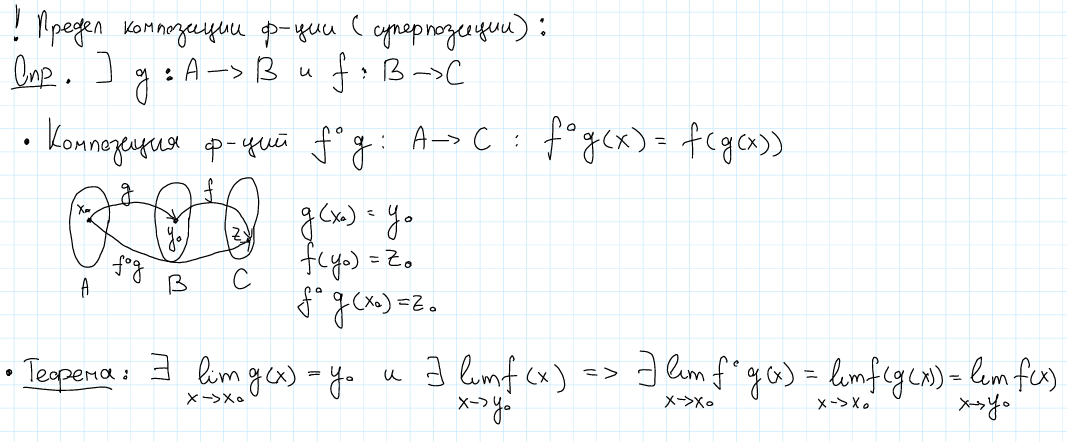 ! Предел композиции ф-ции (суперпозиции):
Опр. ] g : A → B и f : B → C
• Композиция ф-ций f∘g : A → C : f∘g(x) = f(g(x))
g f
x₀ y₀ z₀
f∘g
A B C
g(x₀) = y₀
f(y₀) = z₀
f∘g(x₀) = z₀
• Теорема: ∃ lim g(x) = y₀ и ∃ lim f(x) => ∃ lim f∘g(x) = lim f(g(x)) = lim f(x)
x→x₀ x→y₀ x→x₀ x→x₀ x→y₀